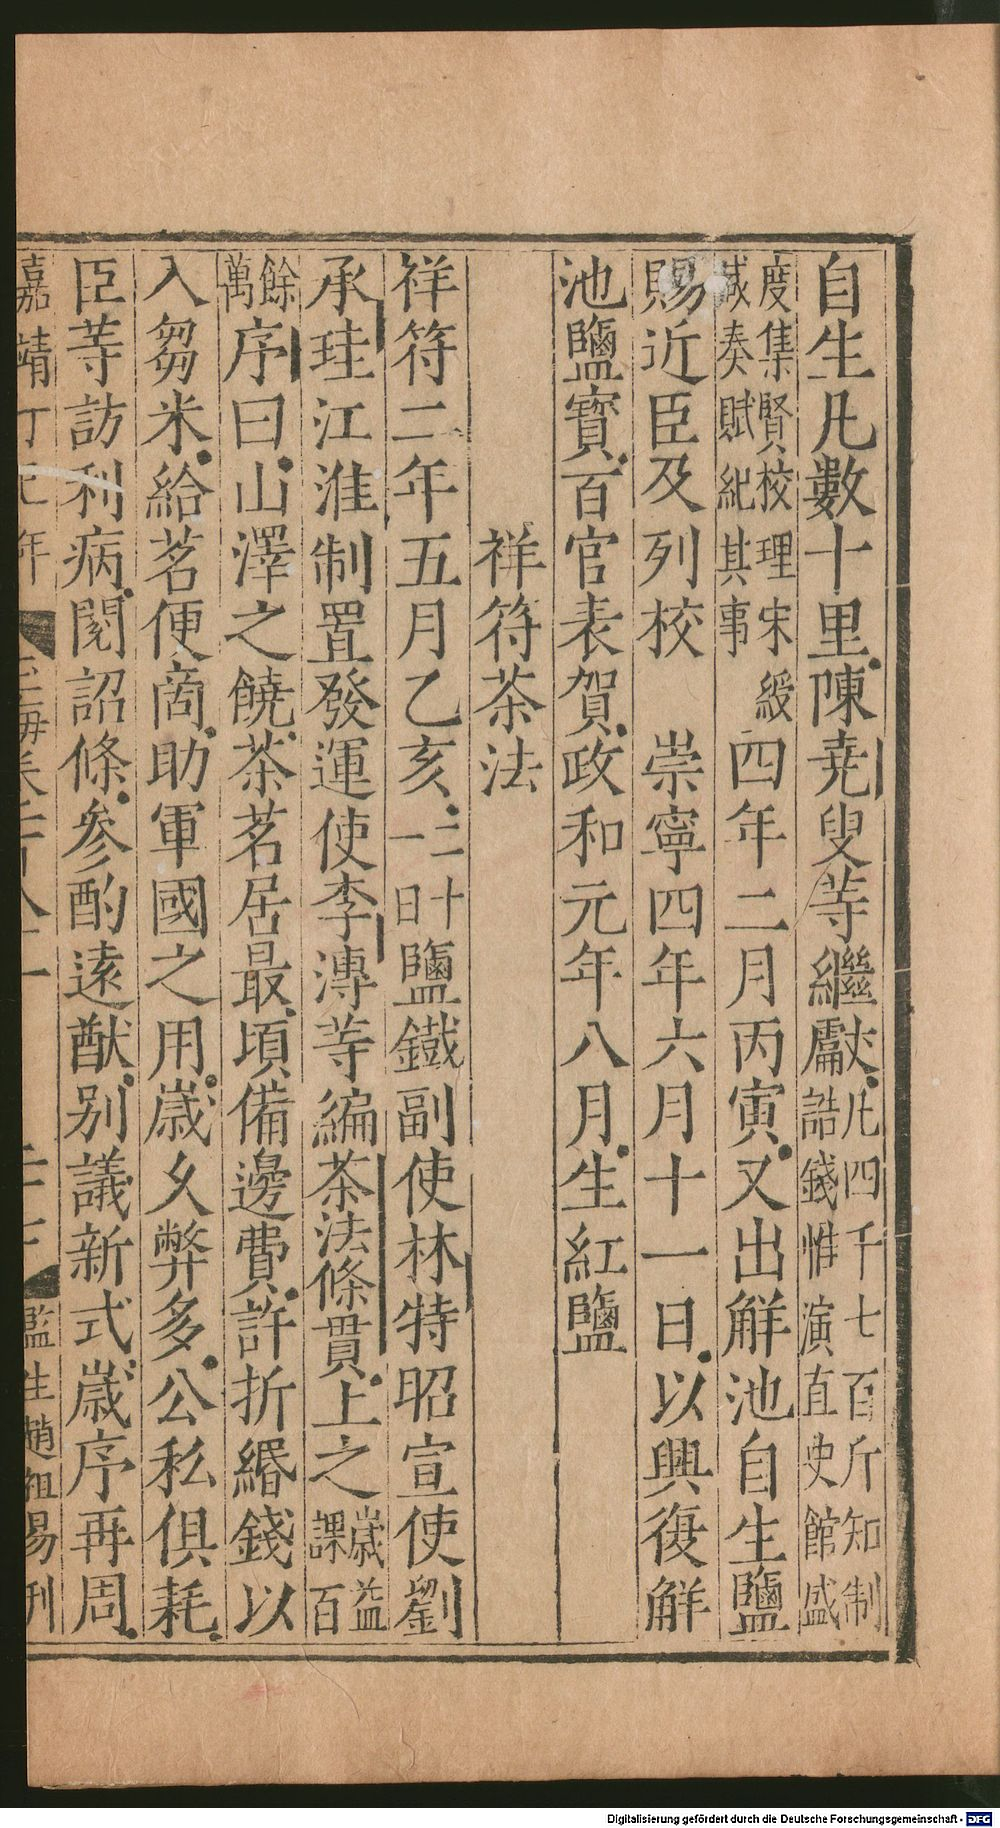 自生凡數十里陳堯叟等繼獻凡四千七百斤知制誥錢惟演直史館盛
度集賢校理宋綬減奏賦紀其事四年二月丙寅又出解池自生鹽
賜近臣及列校 崇寧四年六月十一日以興復解
池鹽寶百官表賀政和元年八月生紅鹽
祥符茶法
祥符二年五月乙亥二十一日鹽鐵副使林特昭宣使劉
承珪江淮制置發運使李溥等編茶法條貫上之歲益課百
餘萬序曰山澤之饒茶茗居最頃備邊費許折緡錢以
入芻米給茗便商助軍國之用歲久弊多公私俱耗
臣等訪利病閱詔條參酌遠猷別議新式歲序再周
嘉靖丁巳年 玉海卷百八十一 二十二 監生趙祖易刊
Digitalisierung gefördert durch die Deutsche Forschungsgemeinschaft - DFG